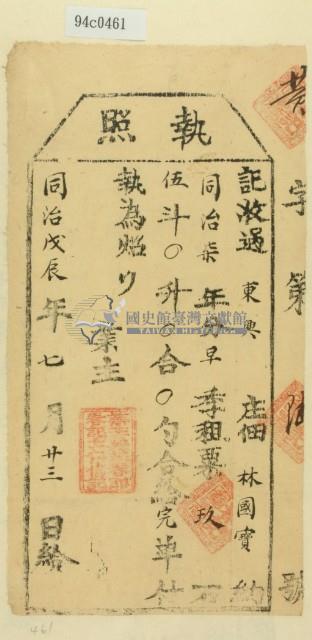 94c0461
執照
記收過東興庄佃林國寶納
同治柒年份早季租粟玖石
伍斗0升0合0勺合給完單付
執為炤
業主
同治戊辰年七月廿三日給
黃字第
號
國史館臺灣文獻館
TAIWAN HISTORICA
461